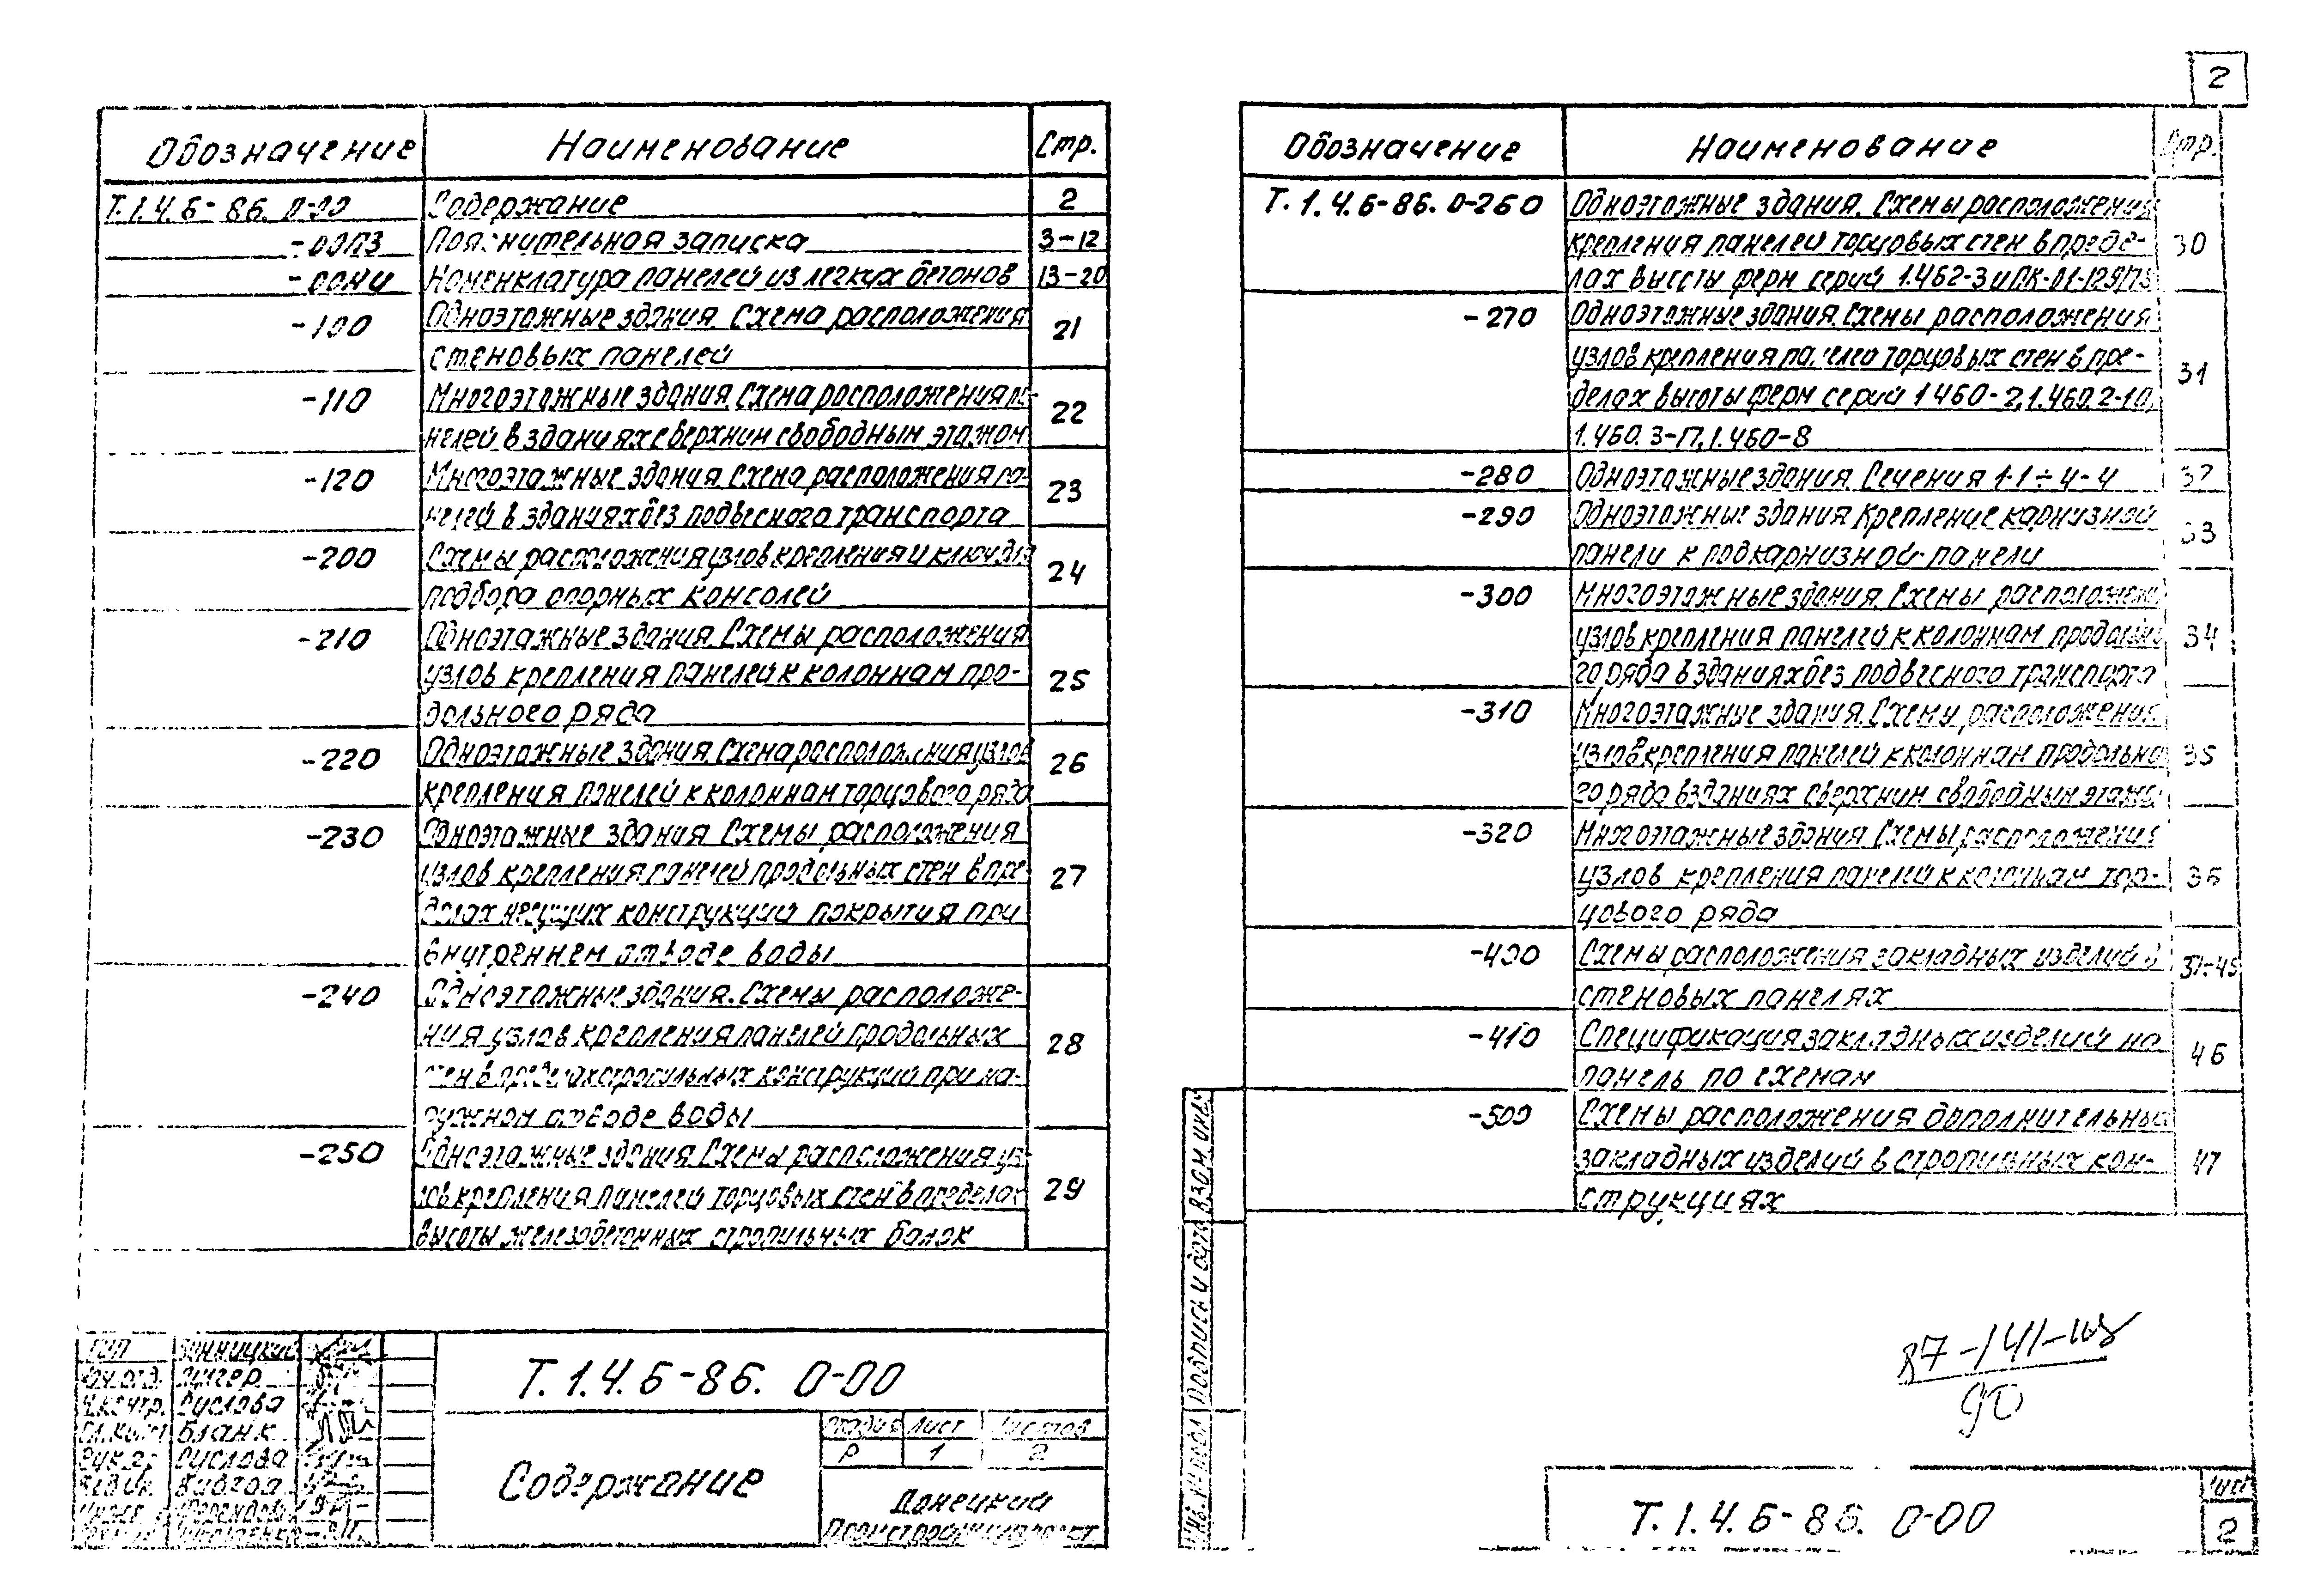 2
Обозначение Наименование Стр.
Т.1.4.Б-86. 0-00 Содержание 2
-00ПЗ Пояснительная записка 3-12
-00НИ Номенклатура панелей из легких бетонов 13-20
-100 Одноэтажные здания. Схема расположения
стеновых панелей 21
-110 Многоэтажные здания. Схема расположения па-
нелей в зданиях с верхним свободным этажом 22
-120 Многоэтажные здания. Схема расположения па-
нелей в зданиях без подвесного транспорта 23
-200 Схемы расположения узлов крепления и ключ для
подбора опорных консолей 24
-210 Одноэтажные здания. Схемы расположения
узлов крепления панелей к колоннам про-
дольного ряда 25
-220 Одноэтажные здания. Схема расположения узлов
крепления панелей к колоннам торцового ряда 26
-230 Одноэтажные здания. Схемы расположения
узлов крепления панелей продольных стен в пре-
делах несущих конструкций покрытия при
внутреннем отводе воды 27
-240 Одноэтажные здания. Схемы расположе-
ния узлов крепления панелей продольных
стен в пределах стропильных конструкций при на-
ружном отводе воды 28
-250 Одноэтажные здания Схемы расположения уз-
лов крепления панелей торцовых стен в пределах
высоты железобетонных стропильных балок 29
ГИП Винницкий
Нач.отд. Лигер
Н.контр. Руслова
Гл.конст. Бланк
Рук.гр. Руслова
Т.1.4.Б-86. 0-00
Содержание
Стадия Лист Листов
Р 1 2
Донецкий
Промстройниипроект
Обозначение Наименование Стр.
Т.1.4.Б-86. 0-260 Одноэтажные здания. Схемы расположения
крепления панелей торцовых стен в преде-
лах высоты ферм серий 1.462-3 и ПК-01-129/78 30
-270 Одноэтажные здания. Схемы расположения
узлов крепления панелей торцовых стен в пре-
делах высоты ферм серий 1.460-2, 1.460.2-10,
1.460.3-17, 1.460-8 31
-280 Одноэтажные здания. Сечения 1-1÷4-4 32
-290 Одноэтажные здания Крепление карнизной
панели к подкарнизной панели 33
-300 Многоэтажные здания. Схемы расположения
узлов крепления панелей к колоннам продольно
го ряда в зданиях без подвесного транспорта 34
-310 Многоэтажные здания. Схемы расположения
узлов крепления панелей к колоннам продольно
го ряда в зданиях с верхним свободным этажом 35
-320 Многоэтажные здания Схемы расположения
узлов крепления панелей к колоннам тор-
цового ряда 36
-400 Схемы расположения закладных изделий в
стеновых панелях 37-45
-410 Спецификация закладных изделий на
панель по схемам 46
-500 Схемы расположения дополнительных
закладных изделий в стропильных кон-
струкциях 47
Инв. № подл Подпись и дата Взам инв.
90
Т.1.4.Б-86. 0-00
Лист
2